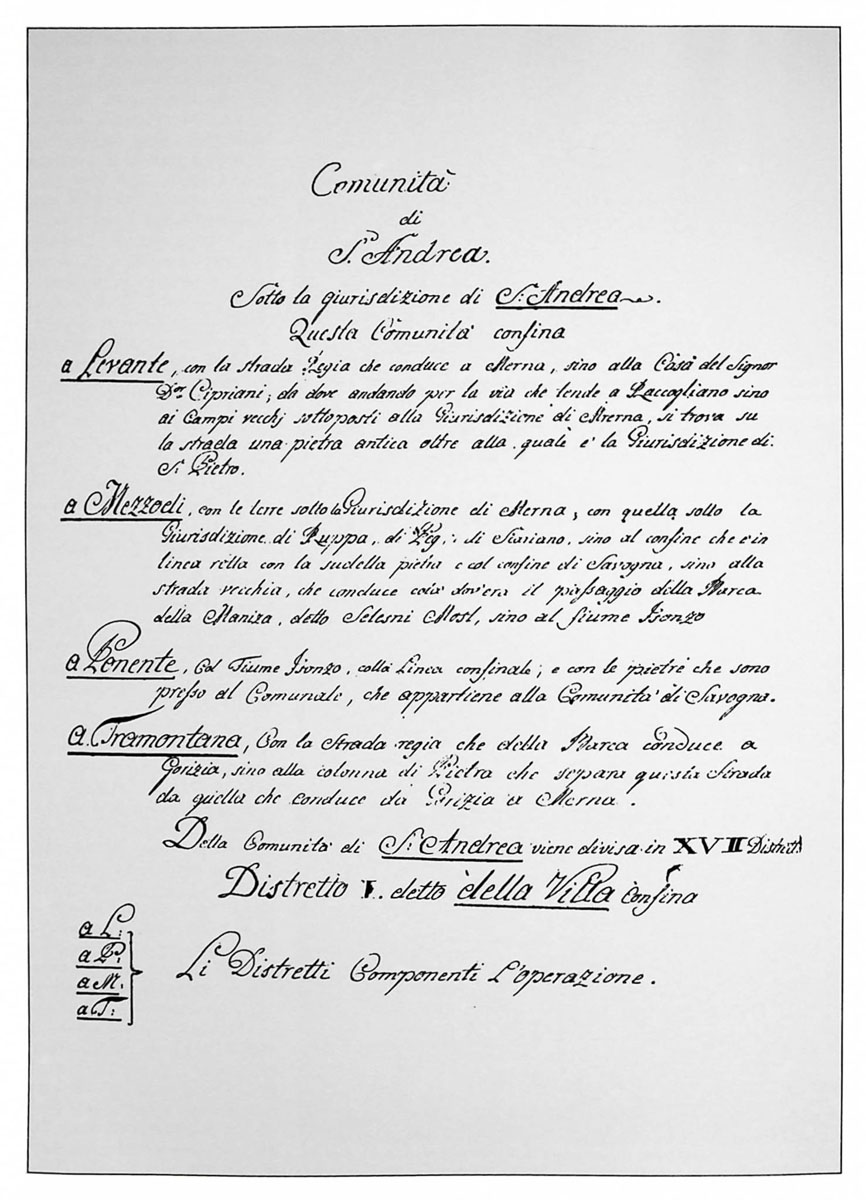 Comunità
di
S. Andrea.
Sotto la giurisdizione di S: Andrea.
Questa Comunità confina
a Levante, con la strada Regia che conduce a Merna, sino alla Casa del Signor
Dor Cipriani; da dove andando per la via che tende a Raccogliano sino
ai Campi vecchj sottoposti alla Giurisdizione di Merna, si trova su
la strada una pietra antica oltre alla quale è la Giurisdizione di
S: Pietro.
a Mezzodi, con le terre sotto la Giurisdizione di Merna; con quella sotto la
Giurisdizione di Ruppa, di di sino al confine che è in
linea retta con la sudetta pietra e col confine di Savogna, sino alla
strada vecchia, che conduce colà dov'era il passaggio della Barca
della Maniza, detto Selesni Most, sino al fiume Isonzo
a Ponente, Col Fiume Isonzo, colla Linea confinale; e con le pietre che sono
presso al Comunale, che appartiene alla Comunità di Savogna.
a Tramontana, Con la Strada regia che della Barca conduce a
Gorizia, sino alla colonna di Pietra che separa questa Strada
da quella che conduce da Gorizia a Merna.
Della Comunità di S: Andrea viene divisa in XVII Distretti
Distretto I. detto della Villa confina
a L:
a P:
a M:
a T:
Li Distretti Componenti L'operazione.